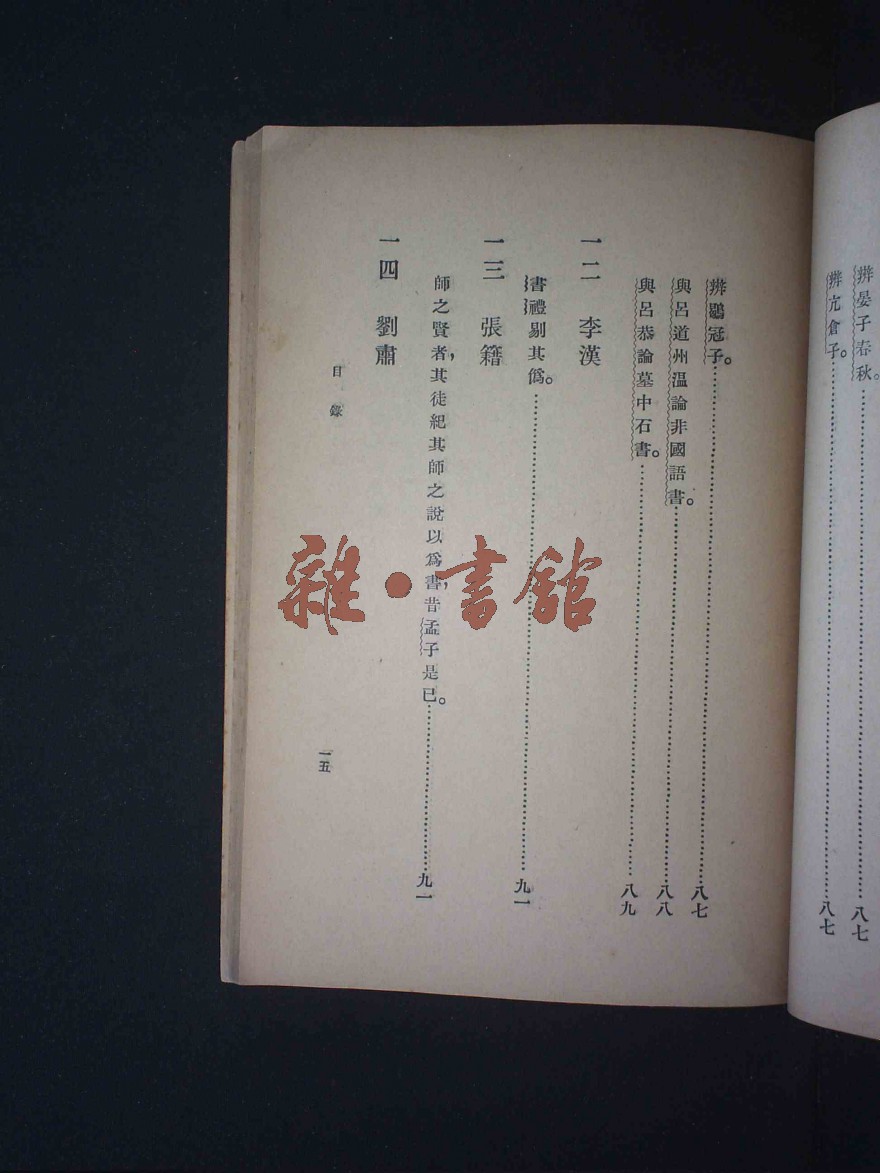 辨晏子春秋。……………………八七
辨亢倉子。……………………八七
辨鶡冠子。……………………八七
與呂道州溫論非國語書。……………………八八
與呂恭論墓中石書。……………………八九
一二 李漢
書禮剔其僞。……………………九一
一三 張籍
師之賢者，其徒紀其師之說以爲書，昔孟子是已。……………………九一
一四 劉肅
目錄
一五
雜·書館